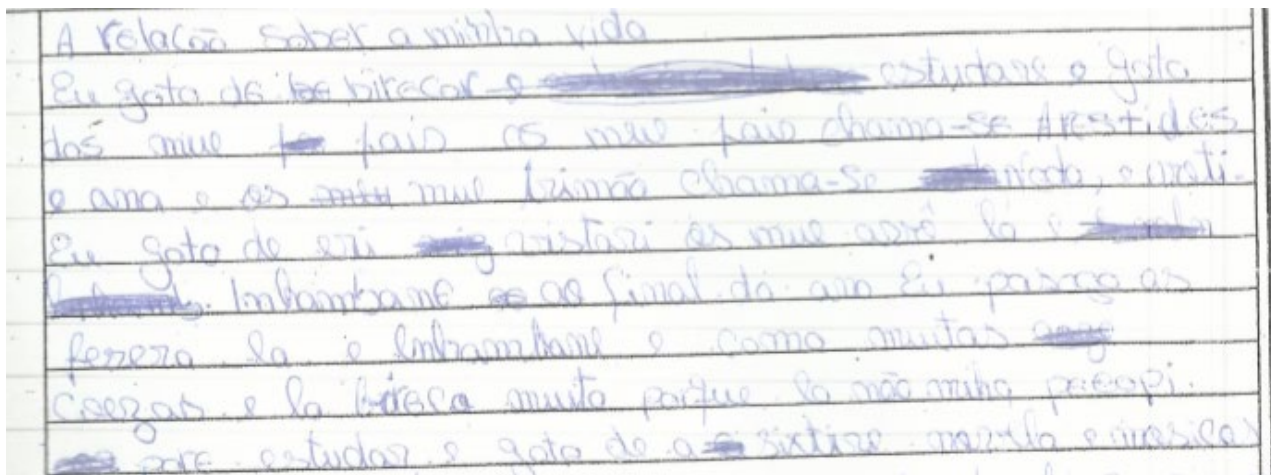 A relação saber a minha vida
Eu gota de birecar e estudare e gota
dos mue pais os mue pais chama-se Arestides
e ana e os mue irimão chama-se
Eu gota de eri vistari os mue avovê la e
Inhambane ao final do ano Eu passo as
ferera la e Inhambane e como muitas
coezas e la bireca muito porque la não minha
estudar e gota de a sixtire novela e musicas